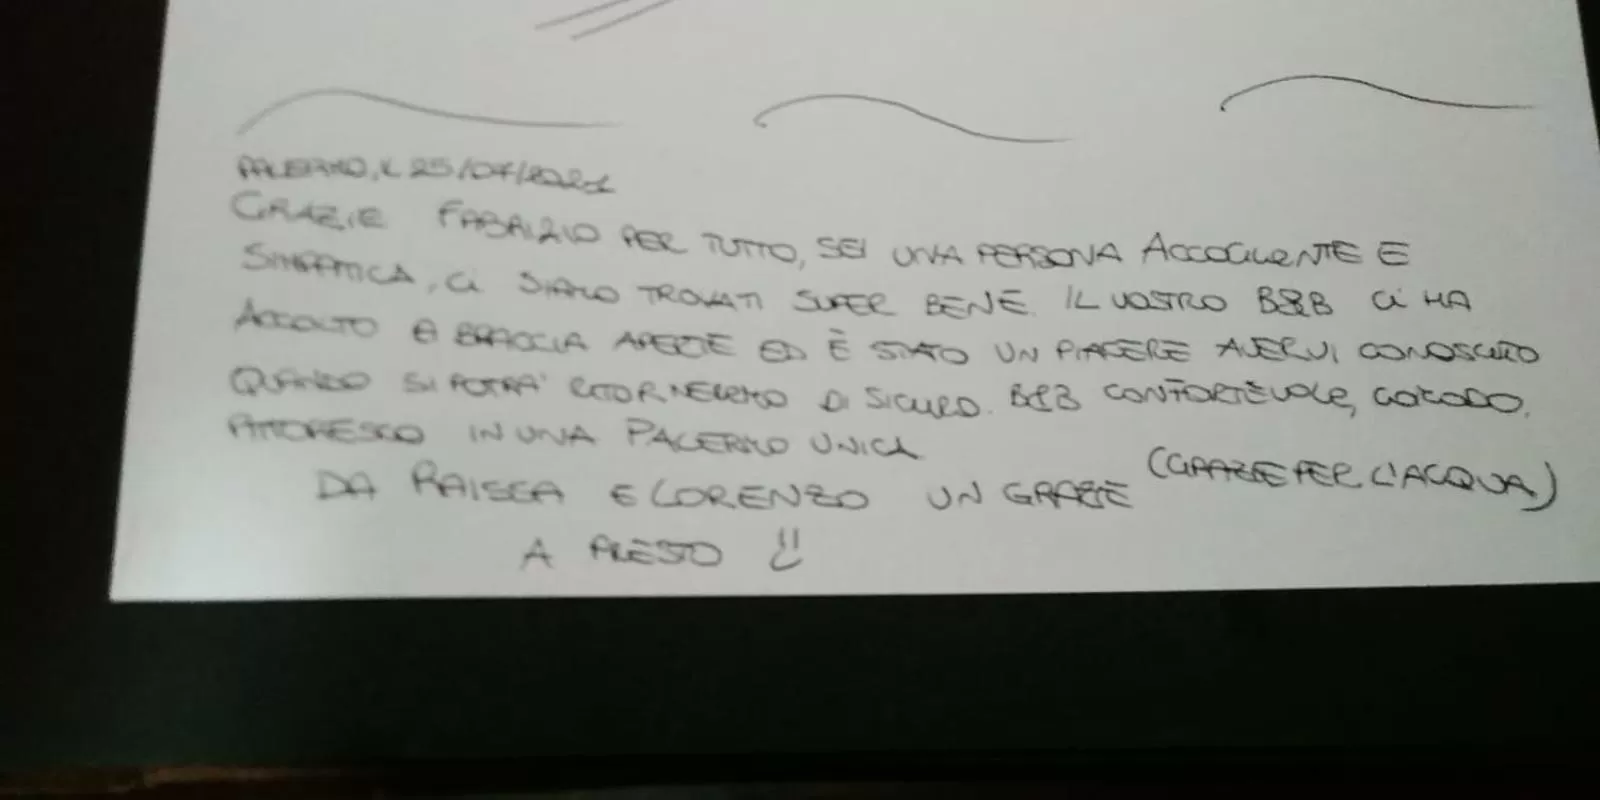 PALERMO, IL 25/07/2021
GRAZIE FABRIZIO PER TUTTO, SEI UNA PERSONA ACCOGLIENTE E
SIMPATICA, CI SIAMO TROVATI SUPER BENE. IL VOSTRO B&B CI HA
ACCOLTO A BRACCIA APERTE ED È STATO UN PIACERE AVERVI CONOSCIUTO
QUANDO SI POTRA' RITORNEREMO DI SICURO. B&B CONFORTEVOLE, COMODO,
PITTORESCO IN UNA PALERMO UNICA
(GRAZIE PER L'ACQUA)
DA RAISSA E LORENZO UN GRAZIE
A PRESTO